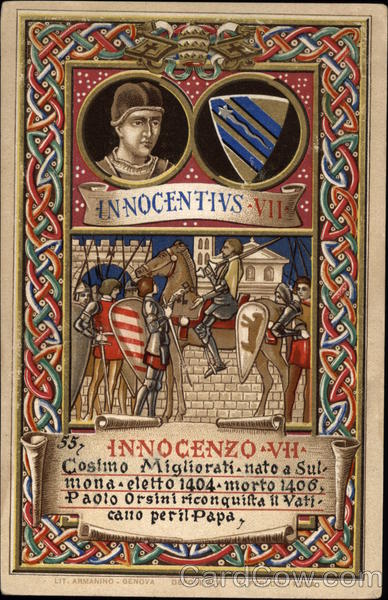 INNOCENTIVS·VII
55,
INNOCENZO·VII
Cosimo Migliorati·nato a Sul-
mona·eletto 1404·morto 1406.
Paolo Orsini riconquista il Vati-
cano per il Papa,
LIT. ARMANINO - GENOVA
CardCow.com